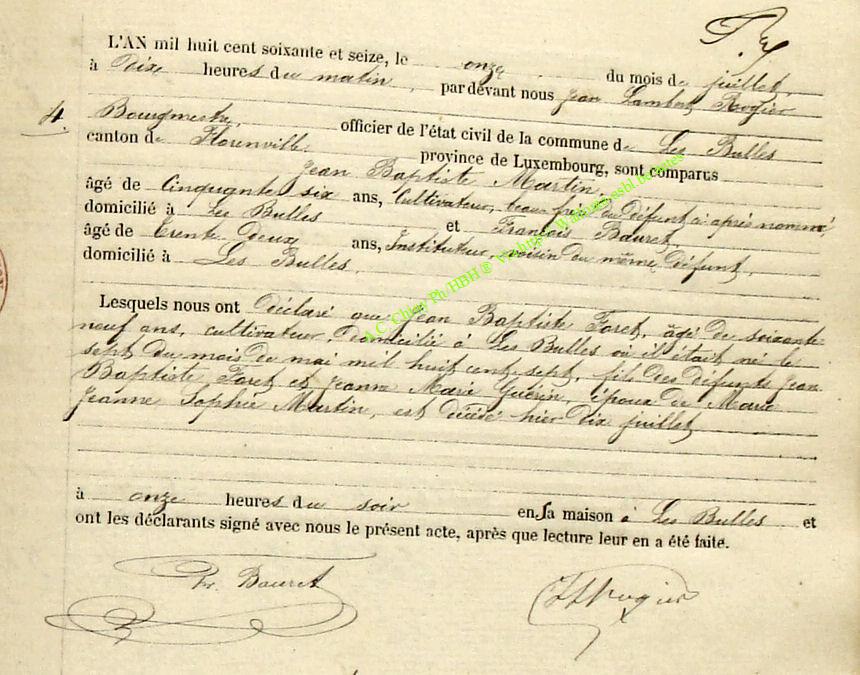 L'AN mil huit cent soixante et seize, le onze du mois de juillet,
à Dix heures du matin, par devant nous Jean Lambert Rogier
4.
Bourgmestre, officier de l'état civil de la commune de Les Bulles
canton de Florenville province de Luxembourg, sont comparus
Jean Baptiste Martin,
âgé de Cinquante six ans, Cultivateur, beau frère du défunt ci après nommé,
domicilié à Les Bulles et François Bauret,
âgé de trente Deux ans, Instituteur, voisin du même défunt,
domicilié à Les Bulles.
Lesquels nous ont Déclaré que Jean Baptiste Foret, âgé de soixante-
neuf ans, cultivateur, domicilié à Les Bulles où il était né le
sept du mois de mai mil huit cent sept, fils des défunts Jean
Baptiste Foret et Jeanne Marie Guérin, époux de Marie
Jeanne Sophie Martin, est décédé hier dix juillet
à onze heures du soir en sa maison à Les Bulles et
ont les déclarants signé avec nous le présent acte, après que lecture leur en a été faite.
Fr. Bauret
JLRogier